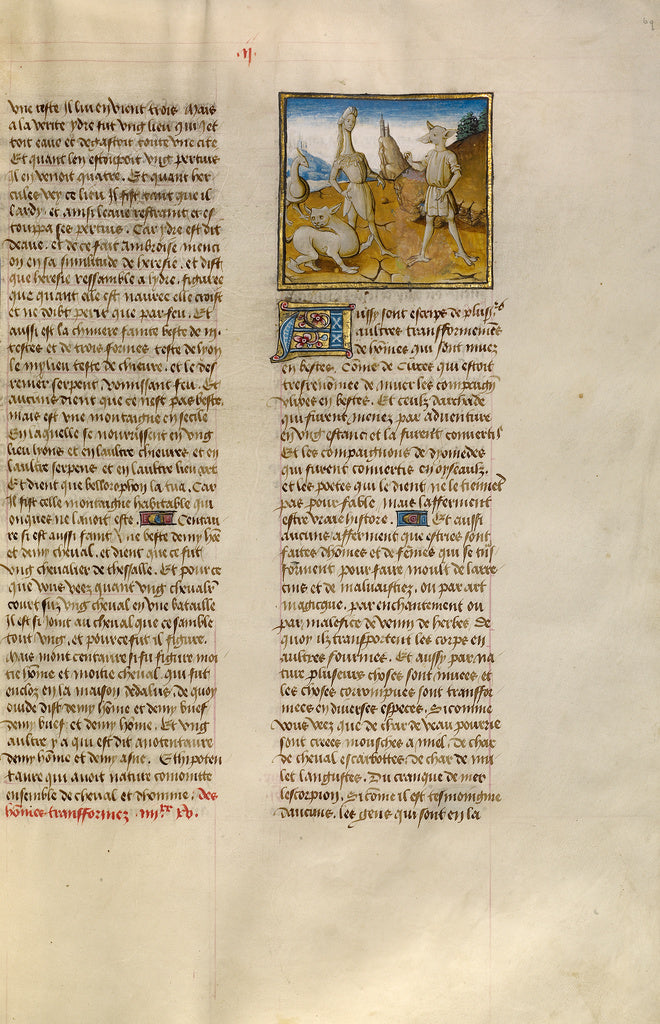 .vi.
69
vne teste Il luy en vient trois Mais
a la verite ydre fut vng lieu qui Jet
toit eaue et degastoit toute vne cite
Et quant len estoupoit vng pertuis
Il en venoit quatre. Et quant her
cules vey ce lieu Il fist tant que il
lardy. et ainsi leaue restraint et es
touppa ses pertuis. Car ydre est dit
deaue. et de ce fait ambroise menci
on en sa similitude de heresie. et dist
que heresie ressamble a ydre. figuree
que quant elle est nauree elle croist
et ne doubt perir que par feu. Et
aussi est la chimere fainte beste de iii.
testes et de trois formes teste de lyon
le mylieu teste de chieure. et le des
renier serpent vomissant feu. Et
aucuns dient que ce nest pas beste.
mais est vne montaigne en secile
En laquelle se nourrissent en vng
lieu lyons et en laultre chieures et en
laultre serpens et en laultre lieu
Et dient que bellorophon la tua. Car
Il fist celle montaigne habitable qui
onques ne lauoit este. Centau
re si est aussi faint vne beste demy hõe
et demy cheual. et dient que ce fut
vng cheualier de thessalle. Et pour ce
que vous veez quant vng cheualr̃
court sur vng cheual en vne bataille
Il est si Joint au cheual que ce samble
tout vng. et pour ce fut il figure.
Mais mont centaure si fu figure moi
tie hõme et moitie cheual. qui fut
encloz en la maison dedalus. de quoy
ouide dist demy hõme et demy buef
demy buef et demy hõme. Et vng
aultre y a qui est dit anotentaure
demy hõme et demy asne. Et hipoten
taure qui auoit nature commixte
ensemble de cheual et dhomme. Des
hõmes transformez. iiii.
Aussy sont escrips de plusr̃s
aultres transformemẽs
de hõmes qui sont muez
en bestes. Cõme de Circes qui estoit
tresrenõmee de muer les compaignõs
vlixes en bestes. Et ceulz darchade
qui furent menez par aduenture
en vng estanc et la furent conuertis
Et les compaignons de dyomedes
qui furent conuertis en oyseaulz.
et les poetes qui le dient ne le tienẽt
pas pour fable mais lafferment
estre vraie histoire. Et aussi
aucuns afferment que estries sont
faittes dhõmes et de fẽmes qui se trãs
forment pour faire moult de larre
cins et de mauuaistiez. ou par art
magicque. par enchantement ou
par malefice de venin de herbes de
quoy ilz transportent les corps en
aultres fourmes. Et aussy par na
ture pluseurs choses sont muees. et
les choses corrompues sont transfor
mees en diuerses especes. Si comme
vous veez que de char de veau pourrie
sont creees mousches a miel. de char
de cheual escarbottes. de char de mu
let langustes. Du cranque de mer
lescorpion. Si cõme il est tesmoingnie
daucuns. les gens qui sont en la